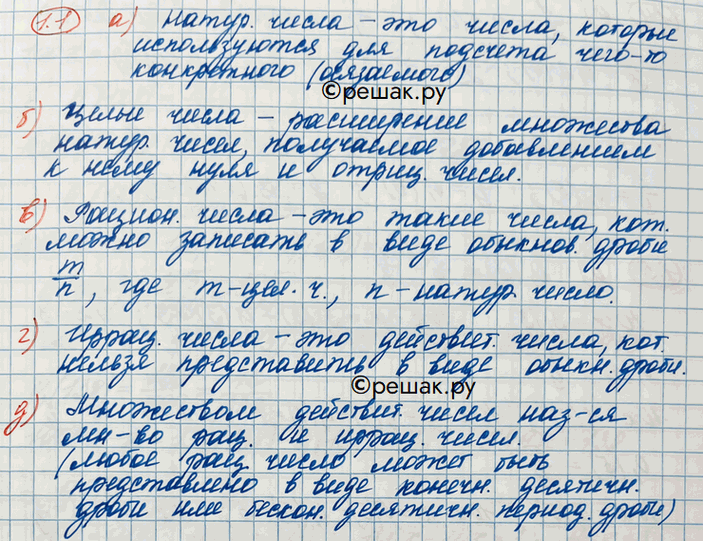 1.1 а) натур. числа – это числа, которые
используются для подсчета чего-то
конкретного (осязаемого)
©решак.ру
б) Целые числа – расширение множества
натур. чисел, получаемое добавлением
к нему нуля и отриц. чисел.
в) Рацион. числа – это такие числа, кот.
можно записать в виде обыкнов. дроби
m/n, где m – цел. ч., n – натур. число.
г) Иррац. числа – это действит. числа, кот.
нельзя представить в виде обыкн. дроби.
©решак.ру
д) Множеством действит. чисел наз-ся
мн-во рац. и иррац. чисел.
(любое рац. число может быть
представлено в виде конечн. десятичн.
дроби или бескон. десятичн. период. дроби)